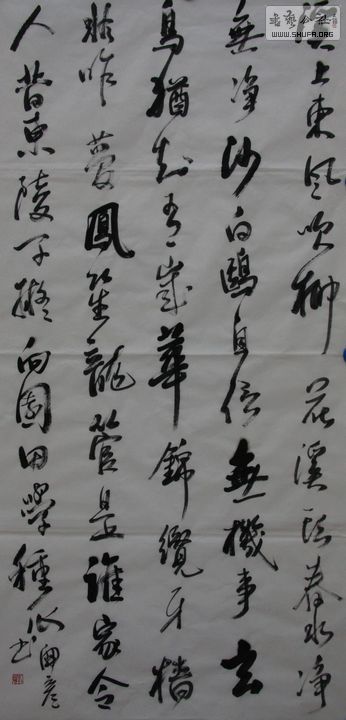 書藝公社
WWW.SHUFA.ORG
上東風吹柳花溪頭春水净
無净沙白鷗自信無機事玄
鳥猶知有歲華錦纜牙檣
昨夢鳳笙龍管是誰家令
人昔東陵子擬向園田學種瓜
彥書